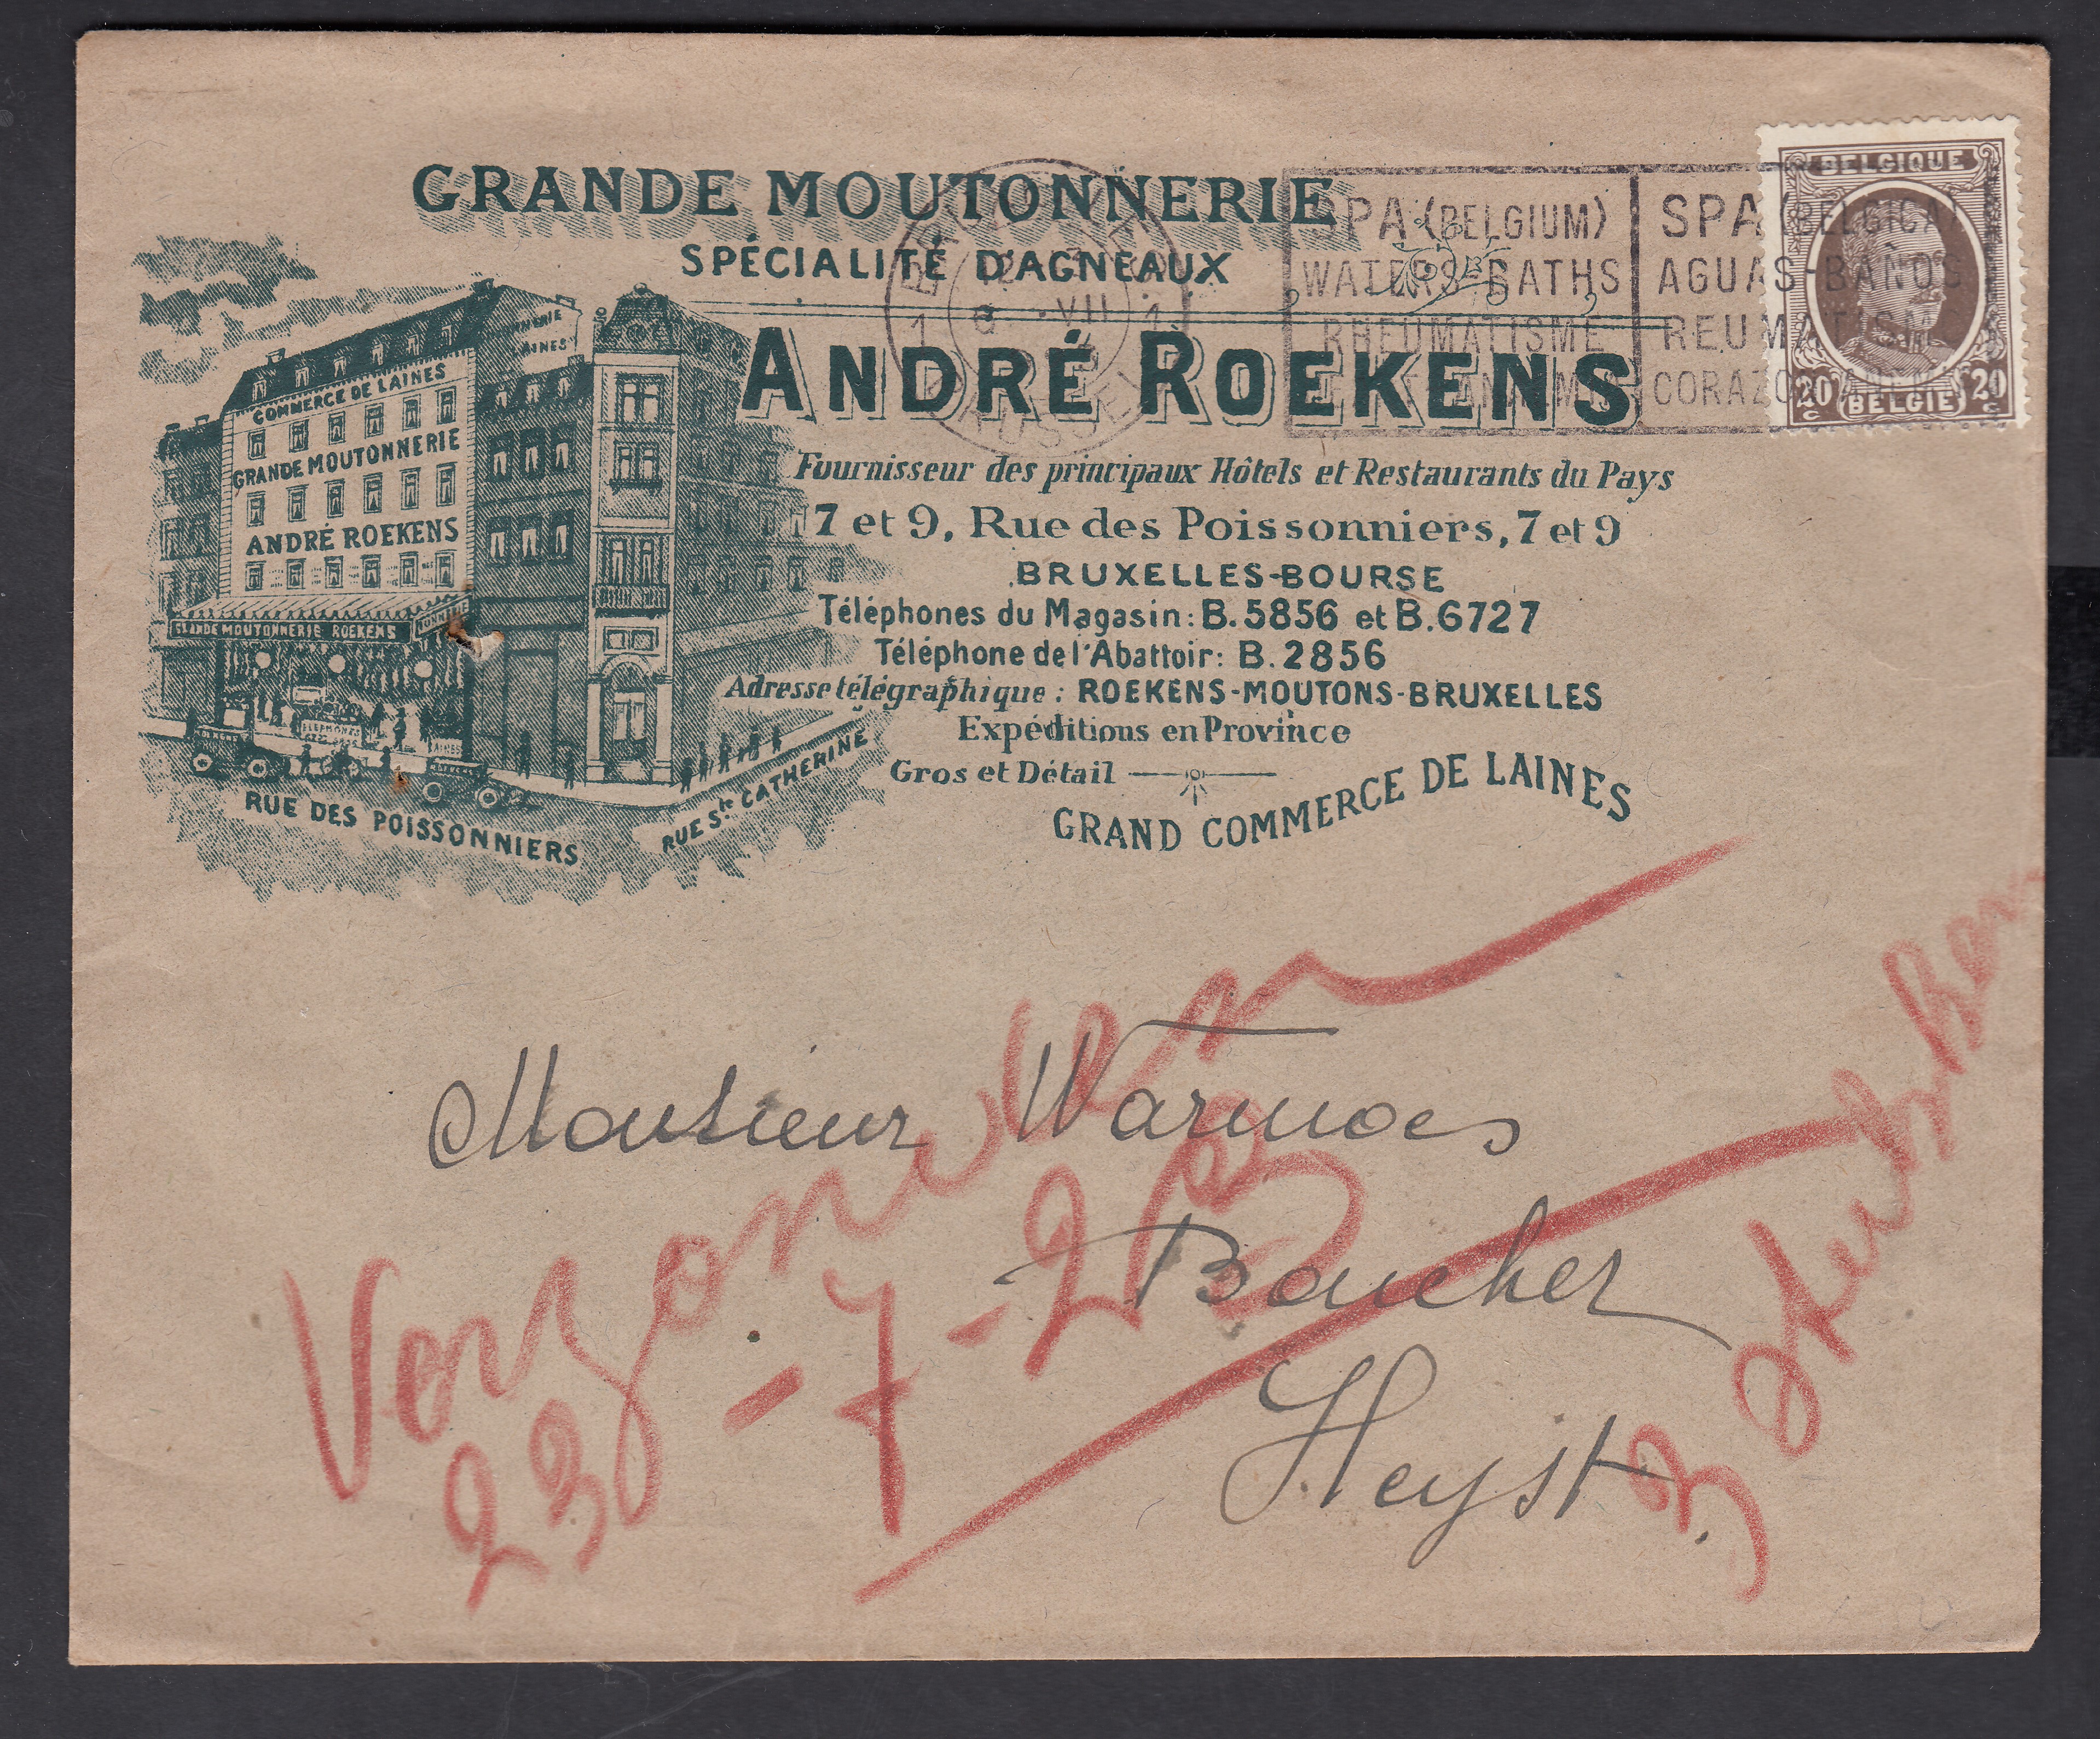 GRANDE MOUTONNERIE
SPÉCIALITÉ D'AGNEAUX
ANDRÉ ROEKENS
Fournisseur des principaux Hôtels et Restaurants du Pays
7 et 9, Rue des Poissonniers, 7 et 9
BRUXELLES-BOURSE
Téléphones du Magasin: B.5856 et B.6727
Téléphone de l'Abattoir: B.2856
Adresse télégraphique: ROEKENS-MOUTONS-BRUXELLES
Expéditions en Province
Gros et Détail
GRAND COMMERCE DE LAINES
COMMERCE DE LAINES
GRANDE MOUTONNERIE
ANDRÉ ROEKENS
LAINES
GRANDE MOUTONNERIE ROEKENS
RUE DES POISSONNIERS
RUE Ste CATHERINE
1 VII 1
SPA (BELGIUM)
WATERS-BATHS
RHEUMATISME
SPA (BELGICA)
AGUAS-BAÑOS
REUMATISMO
CORAZON
BELGIQUE
20 c BELGIË 20 c
Monsieur Warmoes
Boucher
Heyst
Verzonden
23-7-25
3